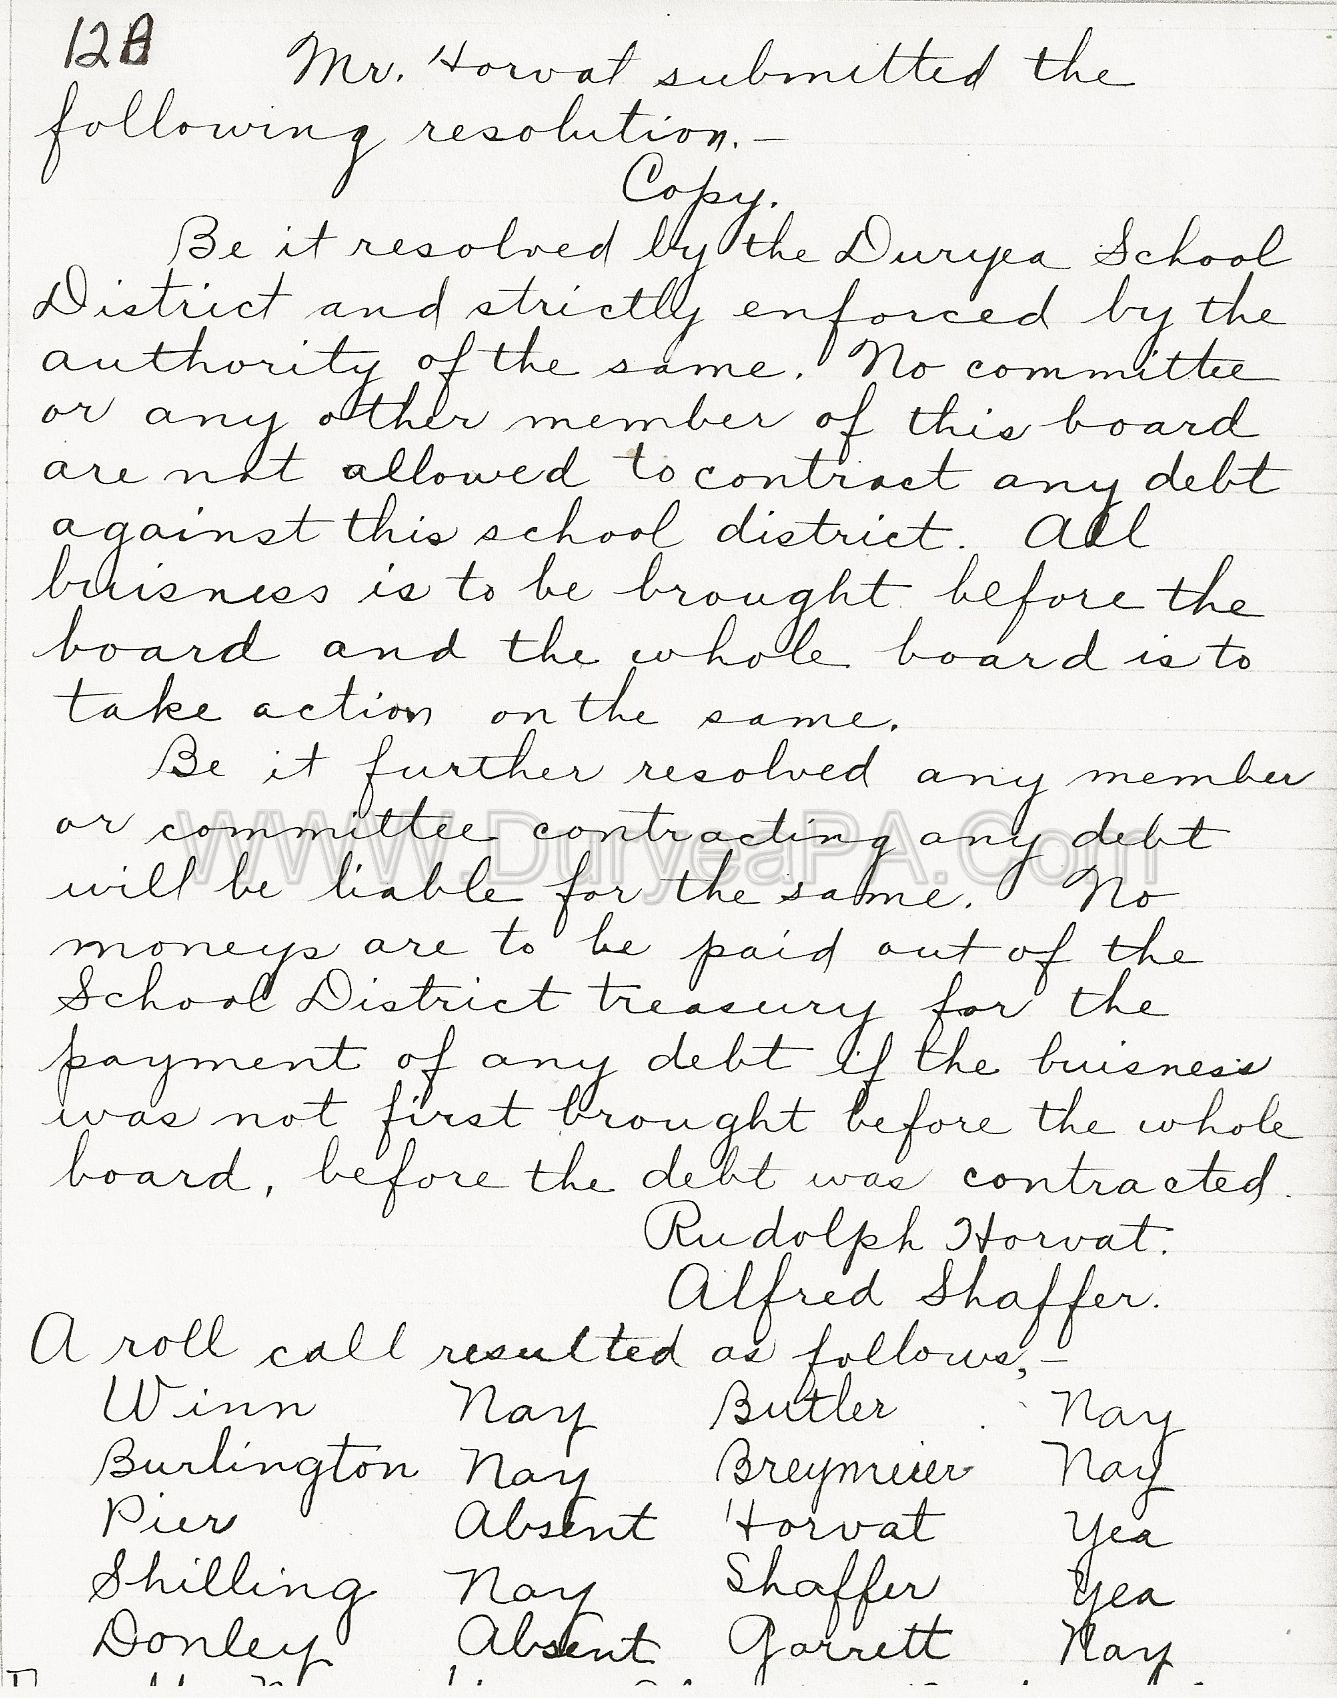 128
Mr. Horvat submitted the
following resolution.—
Copy.
Be it resolved by the Duryea School
District and strictly enforced by the
authority of the same. No committee
or any other member of this board
are not allowed to contract any debt
against this school district. All
buisness is to be brought before the
board and the whole board is to
take action on the same.
Be it further resolved any member
or committee contracting any debt
WWW.DuryeaPA.Com
will be liable for the same. No
moneys are to be paid out of the
School District treasury for the
payment of any debt if the buisness
was not first brought before the whole
board, before the debt was contracted.
Rudolph Horvat.
Alfred Shaffer.
A roll call resulted as follows,—
Winn Nay Butler Nay
Burlington Nay Breymeier Nay
Pier Absent Horvat Yea
Shilling Nay Shaffer Yea
Donley Absent Garrett Nay